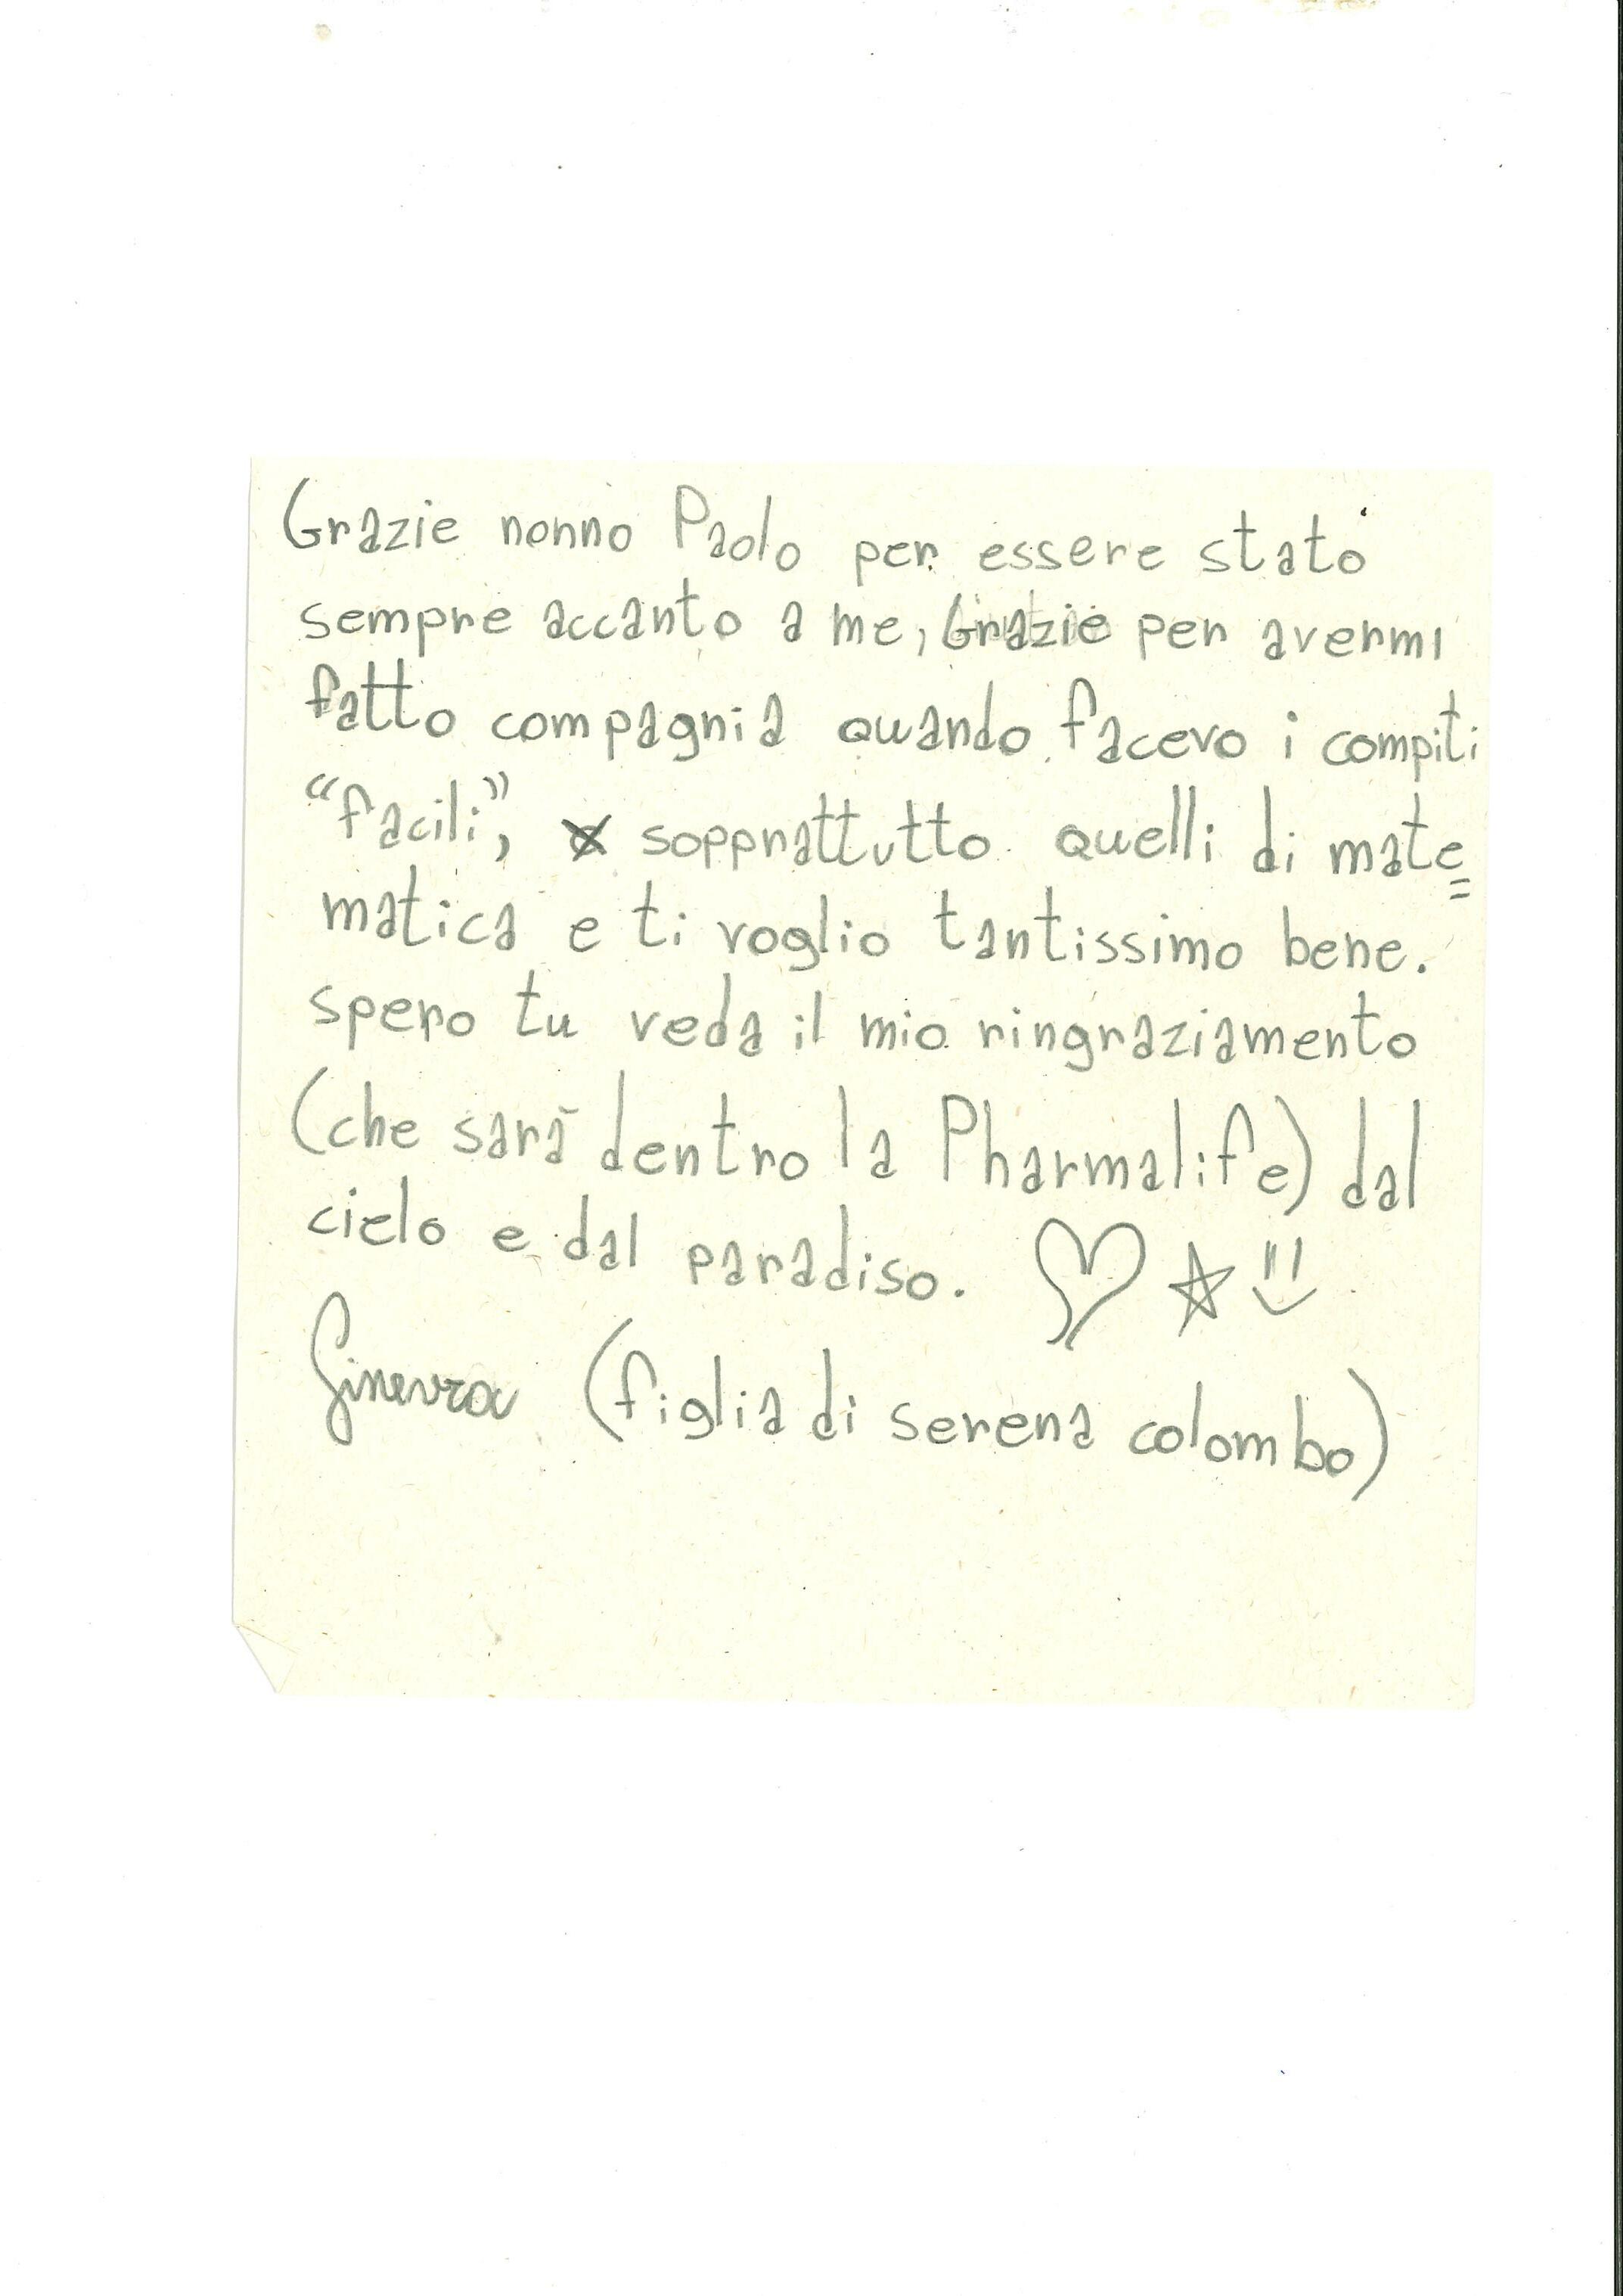 Grazie nonno Paolo per essere stato
sempre accanto a me, Grazie per avermi
fatto compagnia quando facevo i compiti
"facili", sopprattutto quelli di mate=
matica e ti voglio tantissimo bene.
spero tu veda il mio ringraziamento
(che sarà dentro la Pharmalife) dal
cielo e dal paradiso.
Ginevra (figlia di serena colombo)